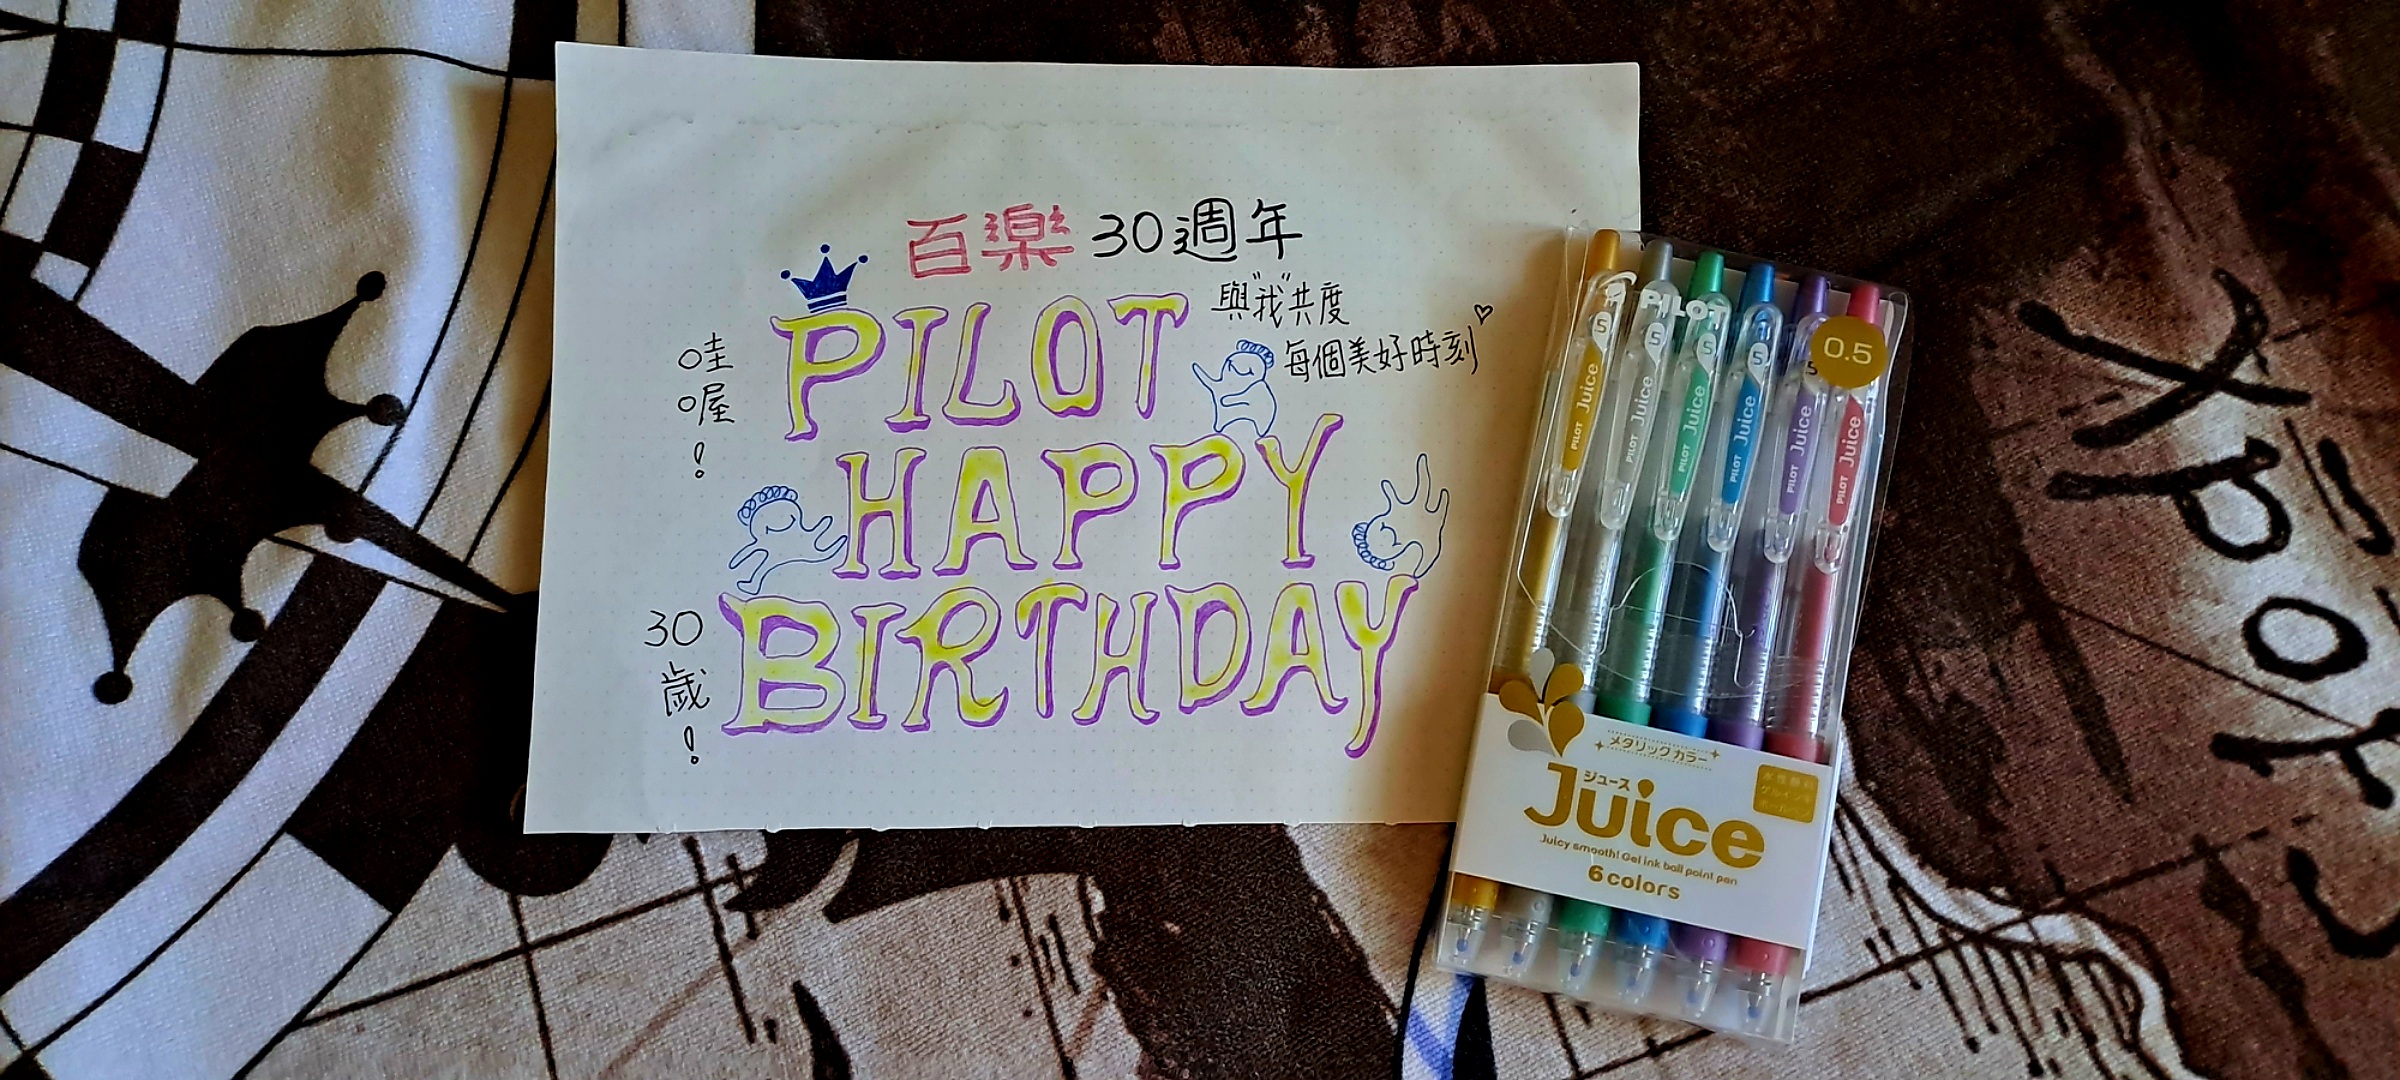 百樂30週年
PILOT
與"我"共度
每個美好時刻♡
哇喔!
HAPPY
BIRTHDAY
30歲!
PILOT
0.5
5
5
5
5
5
PILOT Juice
PILOT Juice
PILOT Juice
PILOT Juice
PILOT Juice
PILOT Juice
メタリックカラー
ジュース
Juice
Juicy smooth! Gel ink ball point pen
6 colors